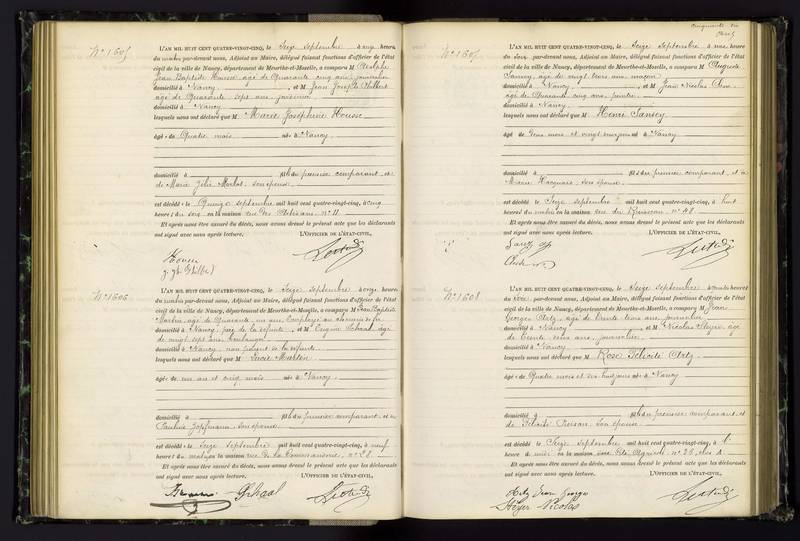 N° 1605
L'AN MIL HUIT CENT QUATRE-VINGT-CINQ, le Seize septembre à onze heures
du matin par-devant nous, Adjoint au Maire, délégué faisant fonctions d'officier de l'état
civil de la ville de Nancy, département de Meurthe-et-Moselle, a comparu M
Jean Baptiste Housse âgé de Quarante cinq ans, journalier
domicilié à Nancy, et M Jean Joseph
âgé de Quarante sept ans,
domicilié à Nancy
lesquels nous ont déclaré que M Marie Joséphine Housse
âgé e de Quatre mois né e à Nancy
domicilié à fille du premier comparant, et
de Marie Julie, son épouse
est décédé e le Quinze septembre mil huit cent quatre-vingt-cinq, à cinq
heures du soir en la maison rue des Artisans n° 11
Et après nous être assuré du décès, nous avons dressé le présent acte que les déclarants
ont signé avec nous après lecture. L'OFFICIER DE L'ÉTAT-CIVIL,
N° 1606
L'AN MIL HUIT CENT QUATRE-VINGT-CINQ, le Seize septembre à onze heures
du matin par-devant nous, Adjoint au Maire, délégué faisant fonctions d'officier de l'état
civil de la ville de Nancy, département de Meurthe-et-Moselle, a comparu M Jean Baptiste
âgé de Quarante un ans, Employé au chemin de fer
domicilié à Nancy, père de la défunte, et M Eugène Schaal âgé
de vingt sept ans, boulanger
domicilié à Nancy, non parent de la défunte
lesquels nous ont déclaré que M Lucie
âgé e de un an et cinq mois né e à Nancy
domicilié à fille du premier comparant, et de
Pauline, son épouse
est décédé e le Seize septembre mil huit cent quatre-vingt-cinq, à neuf
heures du matin en la maison rue de la Commanderie, n° 28
Et après nous être assuré du décès, nous avons dressé le présent acte que les déclarants
ont signé avec nous après lecture. L'OFFICIER DE L'ÉTAT-CIVIL,
Schaal
cinquante six
N° 1607
L'AN MIL HUIT CENT QUATRE-VINGT-CINQ, le Seize septembre à une heure
du soir par-devant nous, Adjoint au Maire, délégué faisant fonctions d'officier de l'état
civil de la ville de Nancy, département de Meurthe-et-Moselle, a comparu M Auguste
Sansoy, âgé de vingt trois ans, maçon
domicilié à Nancy, et M Jean Nicolas
âgé de Quarante cinq ans, peintre
domicilié à Nancy
lesquels nous ont déclaré que M Henri Sansoy
âgé de deux mois et vingt né à Nancy
domicilié à fils du premier comparant, et de
Marie, son épouse
est décédé le Seize septembre mil huit cent quatre-vingt-cinq, à huit
heures du matin en la maison rue du Ruisseau, n° 48
Et après nous être assuré du décès, nous avons dressé le présent acte que les déclarants
ont signé avec nous après lecture. L'OFFICIER DE L'ÉTAT-CIVIL,
N° 1608
L'AN MIL HUIT CENT QUATRE-VINGT-CINQ, le Seize septembre à trois heures
du soir par-devant nous, Adjoint au Maire, délégué faisant fonctions d'officier de l'état
civil de la ville de Nancy, département de Meurthe-et-Moselle, a comparu M Jean
Georges, âgé de Trente trois ans, journalier
domicilié à Nancy, et M Nicolas, âgé
de Trente ans, journalier
domicilié à Nancy
lesquels nous ont déclaré que M Rose Félicité
âgé e de Quatre mois et dix huit jours né e à Nancy
domicilié à fille du premier comparant et
de Félicité, son épouse
est décédé e le Seize septembre mil huit cent quatre-vingt-cinq, à
heure en la maison n° 26
Et après nous être assuré du décès, nous avons dressé le présent acte que les déclarants
ont signé avec nous après lecture. L'OFFICIER DE L'ÉTAT-CIVIL,
Jean George
Nicolas